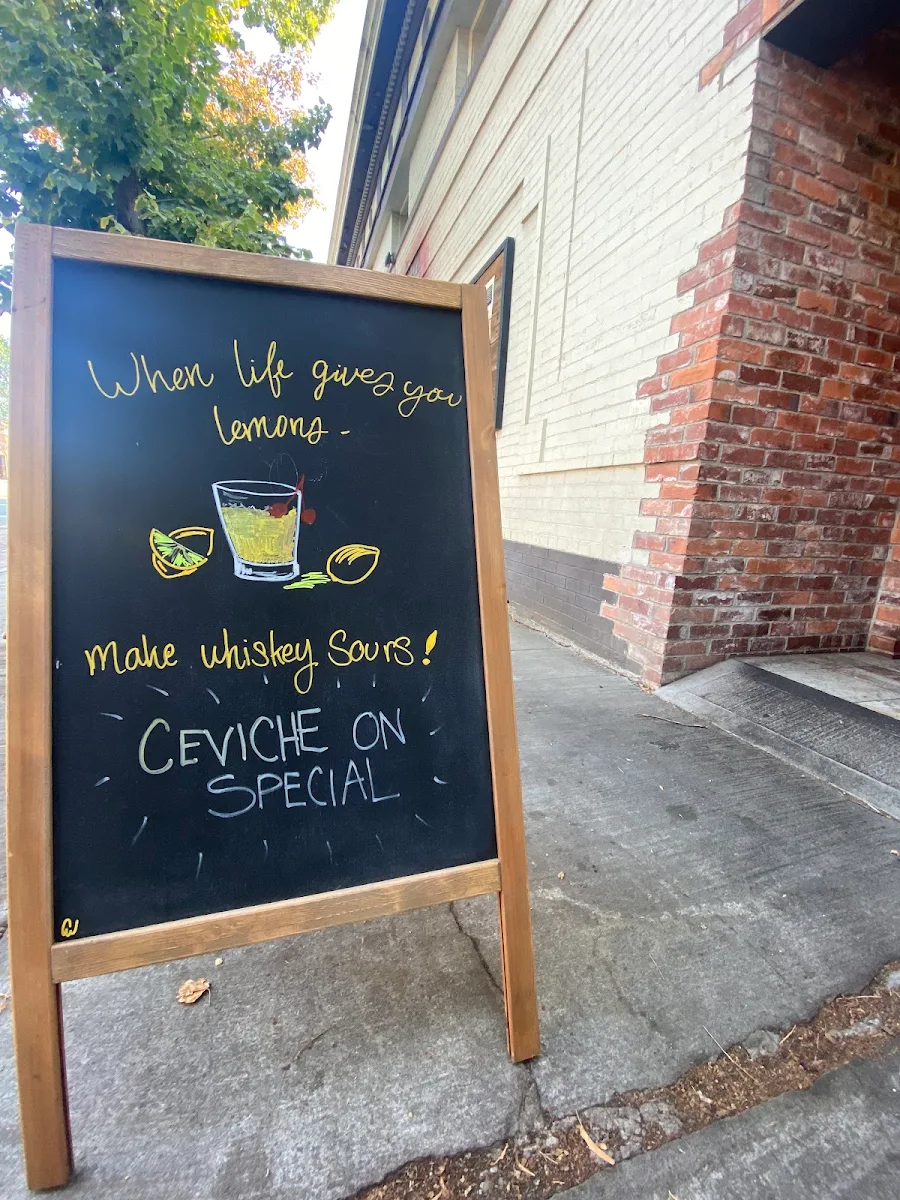 When life gives you
lemons -
make whiskey Sours!
CEVICHE ON
SPECIAL